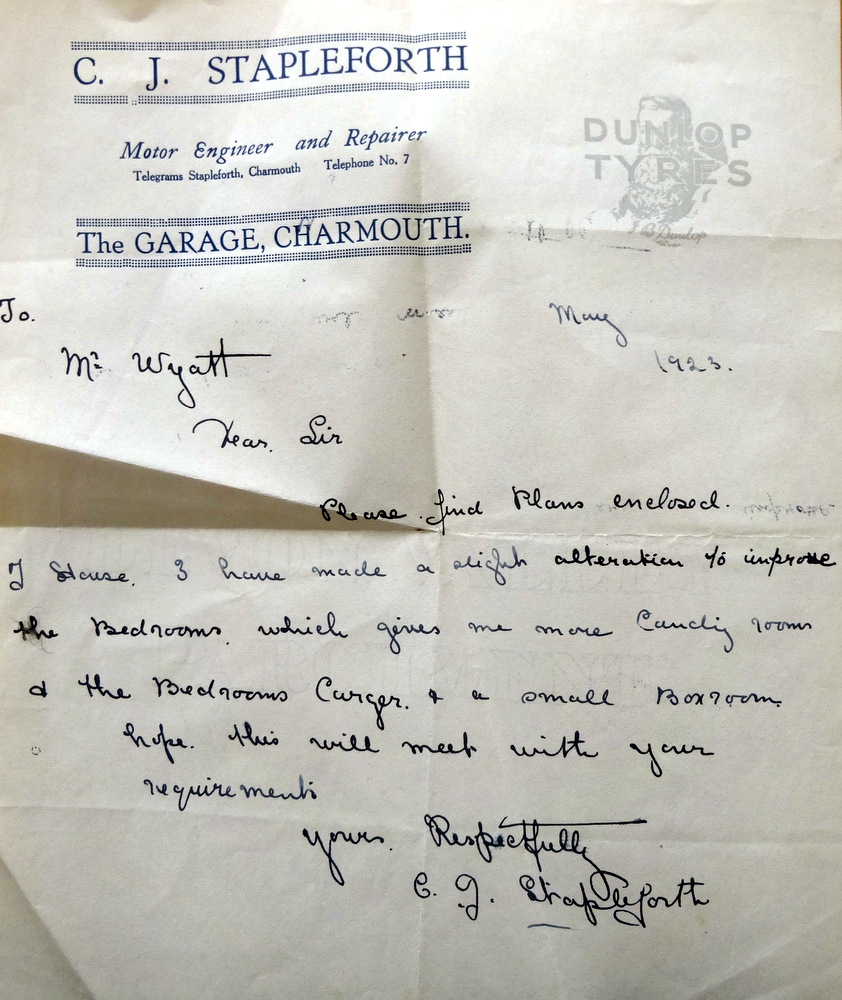 C. J. STAPLEFORTH
Motor Engineer and Repairer
Telegrams Stapleforth, Charmouth Telephone No. 7
The GARAGE, CHARMOUTH.
DUNLOP
TYRES
J B Dunlop
To.
May
1923.
Mr Wyatt
Dear. Sir
Please find Plans enclosed.
I have made a slight alteration to improve
the Bedrooms, which gives me more Landig rooms
& the Bedrooms Larger. & a small Boxroom.
hope. this will meet with your
requirements
yours. Respectfully
C. J. Stapleforth